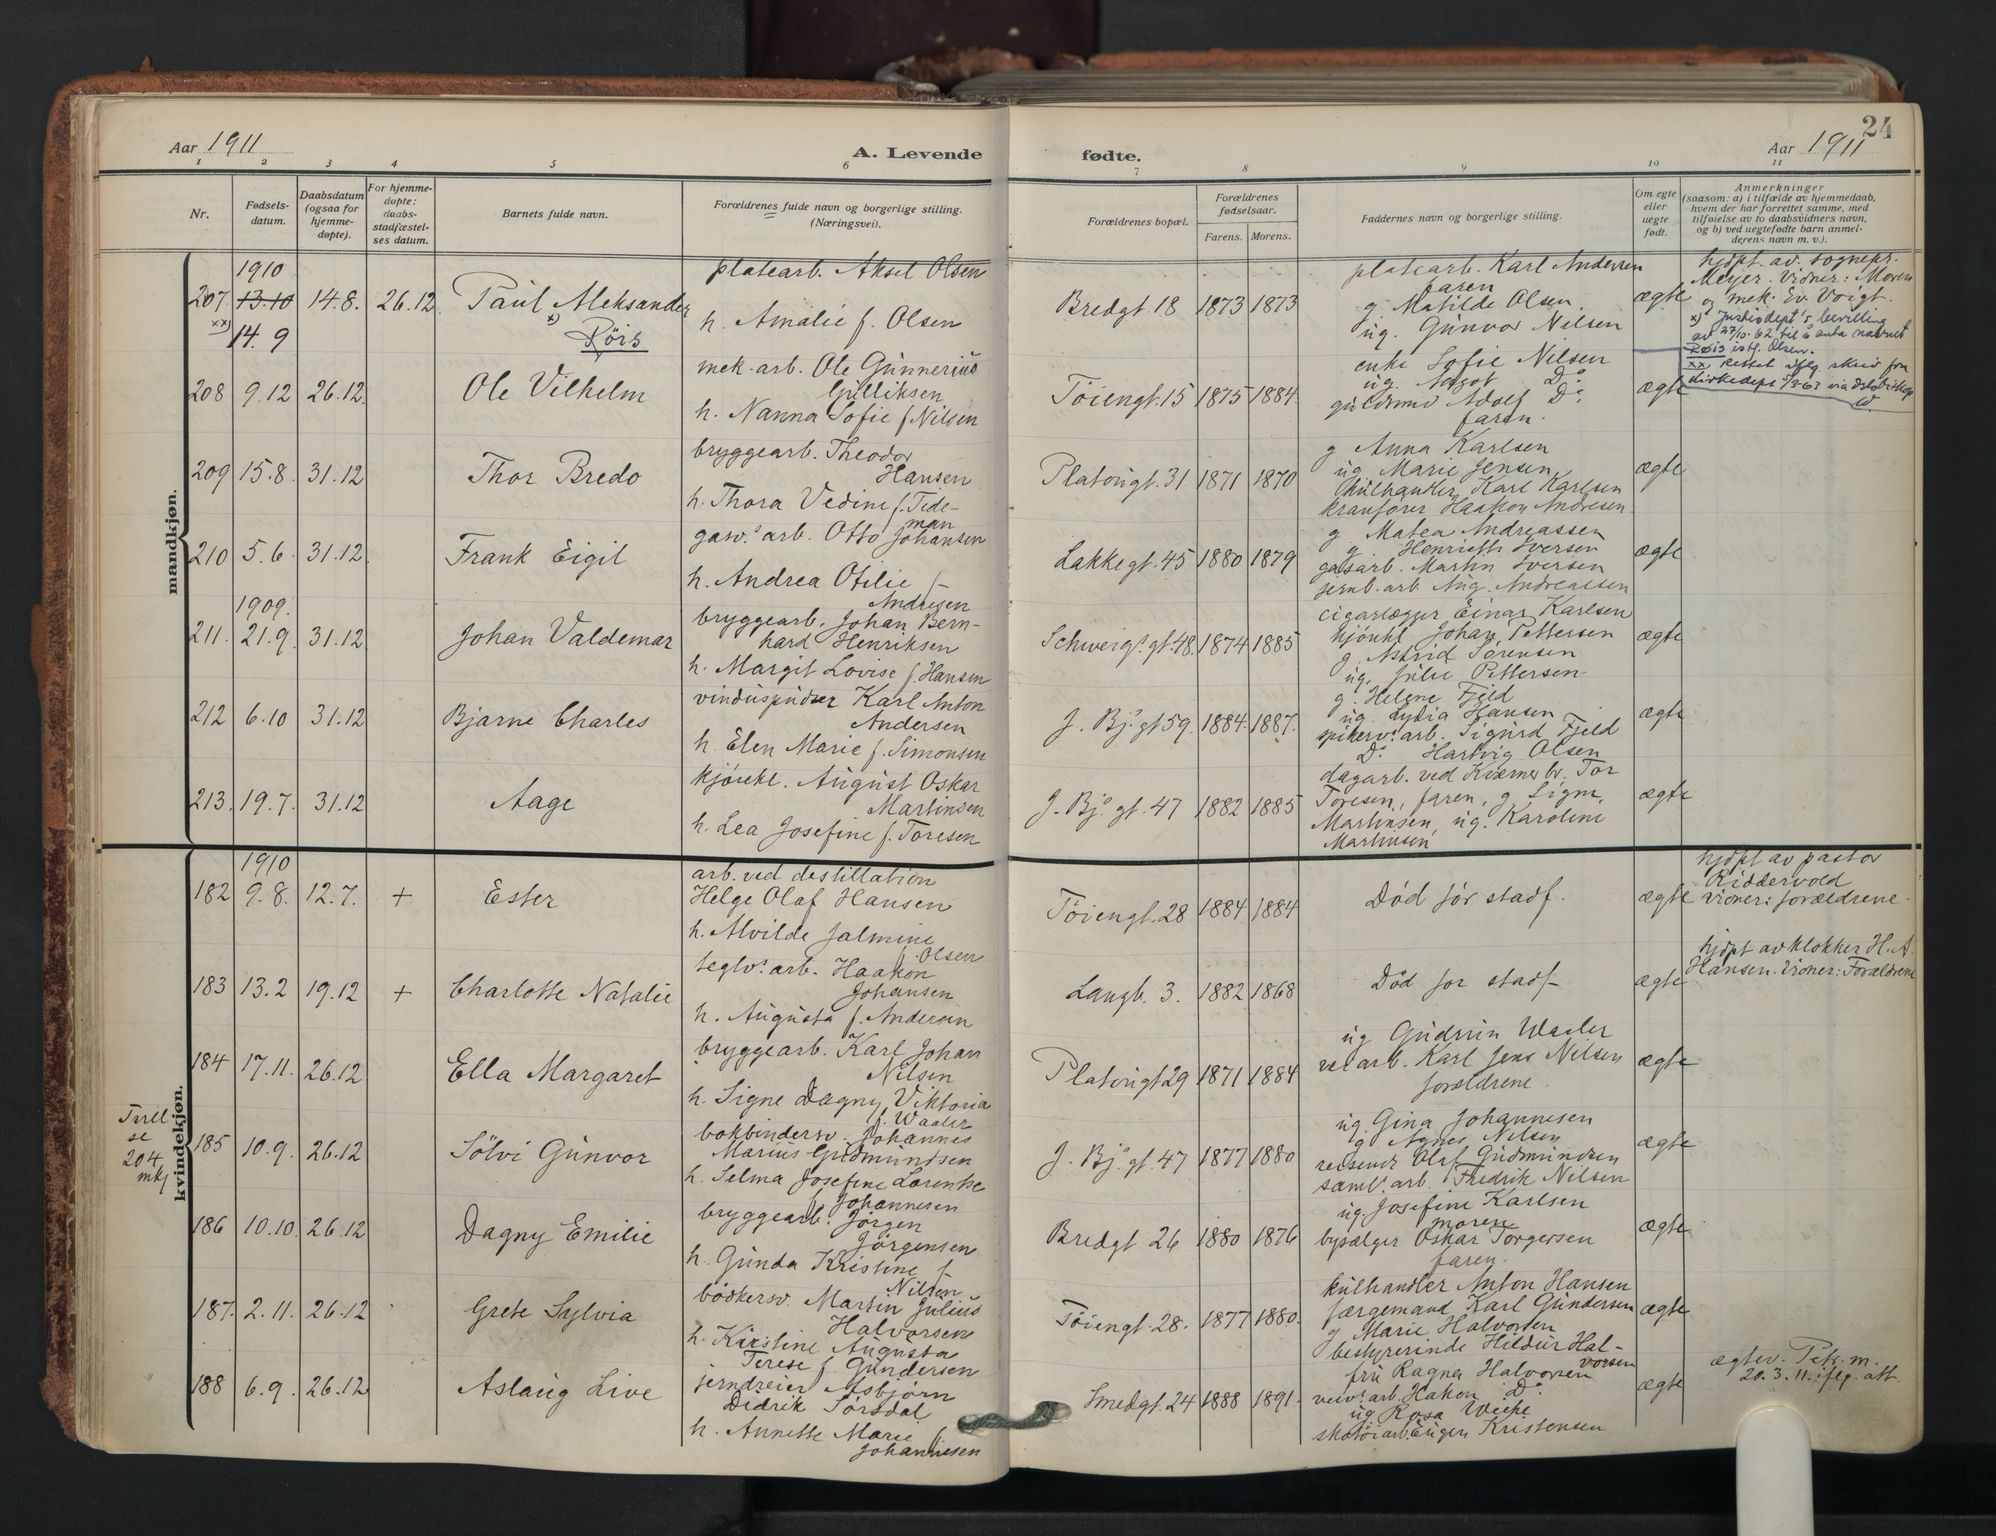 Aar 1911
A. Levende
fødte.
Aar 1911
24
1 2 3 4 5 6 7 8 9 10 11
Nr.
Fødsels-
datum.
Daabsdatum
(ogsaa for
hjemme-
døpte).
For hjemme-
døpte:
daabs-
stadfæstel-
ses datum.
Barnets fulde navn.
Forældrenes fulde navn og borgerlige stilling.
(Næringsvei).
Forældrenes bopæl.
Forældrenes
fødselsaar.
Farens. Morens.
Faddernes navn og borgerlige stilling.
Om egte
eller
uegte
født.
Anmerkninger
(saasom: a) i tilfælde av hjemmedaab,
hvem der har forrettet samme, med
tilføielse av to daabsvidners navn,
og b) ved uegtefødte barn anmel-
derens navn m. v.).
mandkjøn.
1910
207. 13.10 14.8. 26.12. Paul Aleksander
xx) 14.9
x) Röis
platearb. Aksel Olsen
h. Amalie f. Olsen
Bredgt 18 1873 1873
platearb. Karl Andersen
faren
g. Matilde Olsen
ug. Gunvor Nilsen
ægte
hjdpt. av sognepr.
Meyer. Vidner: Moren
og mek. Ev. Voigt.
x) Justisdept's bevilling
av 27/10-62 til å anta navnet
Røis istf. Olsen.
xx) Rettet iflg skriv fra
208 9.12 26.12. Ole Vilhelm
mek. arb. Ole Gunnerius
Gulliksen
h. Nanna Sofie f. Nilsen
Töiengt. 15 1875 1884.
enke Sofie Nilsen
ug. Aagot Do
Adolf Do
faren.
ægte
209 15.8. 31.12 Thor Bredo
bryggearb. Theodor
Hansen
h. Thora Vedine f. Tede-
man
Platougt. 31 1871 1870
g Anna Karlsen
ug. Marie Jensen
kulhandler Karl Karlsen
kranförer Haakon Andresen
ægte
210 5.6. 31.12 Frank Eigil
gasv. arb. Otto Johansen
h. Andrea Otilie f.
Andresen
Lakkegt. 45 1880 1879
g Matea Andreassen
g. Henriette Iversen
gasarb. Martin Iversen
jernb. arb. Aug. Andreassen
ægte
1909.
211. 21.9. 31.12 Johan Valdemar
bryggearb. Johan Bern-
hard Henriksen
h. Margit Lovise f. Hansen
Schweig. gt. 48. 1874 1885
cigarlægger Einar Karlsen
kjörekl Johan Pettersen
g. Astrid Sörensen
ug. Julie Pettersen
ægte
212 6.10 31.12 Bjarne Charles
vinduspudser Karl Anton
Andersen
h. Elen Marie f. Simonsen
J. Bj. gt 59. 1884. 1887.
g. Helene Fjeld
ug. Lydia Hansen
spikerv. arb. Sigurd Fjeld
Do Hartvig Olsen
ægte
213. 19.7. 31.12 Aage
kjörekl. August Oskar
Martinsen
h. Lea Josefine f. Toresen
J. Bj. gt. 47 1882 1885
dagarb. ved Kværnerbr. Tor
Toresen, faren, g Signe
Martinsen, ug. Karoline
Martinsen
ægte
kvindekjøn.
1910
182 9.8. 12.7. + Ester
arb. ved destillation
Helge Olaf Hansen
h. Alvilde Jalmine
f. Olsen
Töiengt. 28 1884 1884
Död för stadf.
ægte
hjdpt av pastor
Riddervold
vidner: forældrene.
183 13.2 19.12 + Charlotte Natalie
teglv. arb. Haakon
Johansen
h. Augusta f. Andersen
Langb. 3. 1882 1868
Död for stadf.
ægte
hjdpt av klokker H. A
Hansen. Vidner: Forældrene
184 17.11. 26.12 Ella Margaret
bryggearb. Karl Johan
Nilsen
h. Signe Dagny Viktoria
f. Waaler
Platougt 29 1871 1884
ug Gudrun Waaler
arb. Karl Jens Nilsen
forældrene.
ægte
Tvill
se
204
mkj
185 10.9. 26.12 Sölvi Gunvor
bokbindersv. Johannes
Marius Gudmundsen
h. Selma Josefine Lorentse
f. Johannesen
J. Bj. gt. 47 1877 1880
ug. Gina Johannesen
g Agnes Nilsen
reisende Olaf Gudmundsen
arb. Fredrik Nilsen
ægte
186 10.10. 26.12 Dagny Emilie
bryggearb. Jörgen
Jörgensen
h. Gunda Kristine f.
Nilsen
Bredgt 26 1880 1876
ug. Josefine Karlsen
moren
bysælger Oskar Torgersen
faren.
ægte
187. 2.11. 26.12 Grete Sylvia
bödkersv. Martin Julius
Halvorsen
h. Kirstine Augusta
Terese f. Gundersen
Töiengt. 28. 1877 1880.
kulhandler Anton Hansen
færgemand Karl Gundersen
g Marie Halvorsen
bestyrerinde Hildur Hal-
vorsen
ægte
188 6.9. 26.12 Aslaug Live
jerndreier Asbjørn
Didrik Sörsdal
h. Annette Marie f.
Johannesen
Smedgt. 24 1888 1891.
fru Ragna Halvorsen
arb. Hakon Do
ug Rosa
skotöiarb. Eugen Kristensen
ægte
ægtev. Petr. m.
20.3.11. iflg. att.